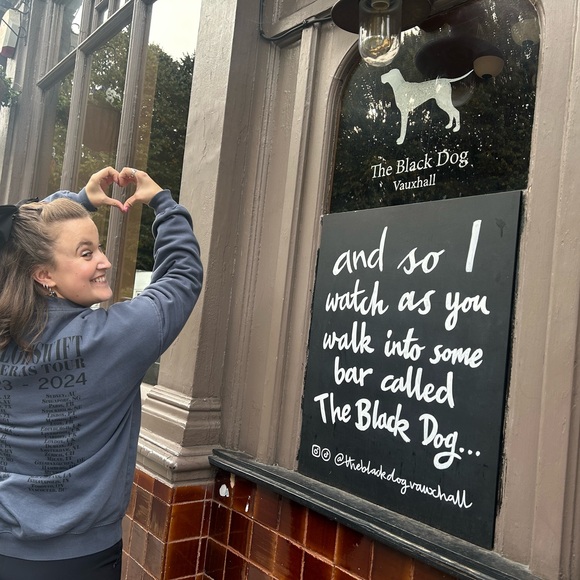 The Black Dog
Vauxhall
and so I
watch as you
walk into some
bar called
The Black Dog...
@theblackdogvauxhall
SWIFT
ERAS TOUR
- 2024